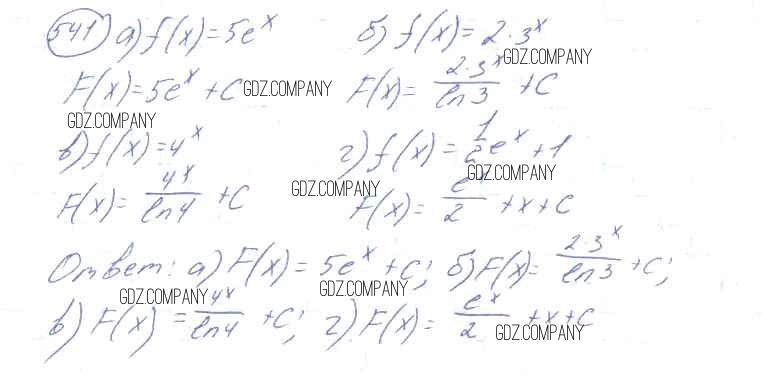 541 а) f(x) = 5e^x б) f(x) = 2·3^x
GDZ.COMPANY
F(x) = 5e^x + C GDZ.COMPANY F(x) = 2·3^x / ln 3 + C
GDZ.COMPANY
в) f(x) = 4^x г) f(x) = 1/2 e^x + 1
GDZ.COMPANY
F(x) = 4^x / ln 4 + C GDZ.COMPANY F(x) = e^x / 2 + x + C
Ответ: а) F(x) = 5e^x + C; б) F(x) = 2·3^x / ln 3 + C;
GDZ.COMPANY GDZ.COMPANY
в) F(x) = 4^x / ln 4 + C; г) F(x) = e^x / 2 + x + C
GDZ.COMPANY